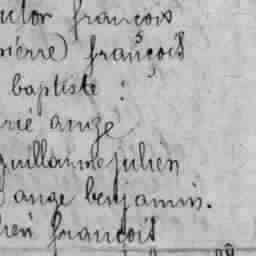 ictor françois
pierre) françois
baptiste :
rié ange
guillaume julien
ange benjamin.
lien françois